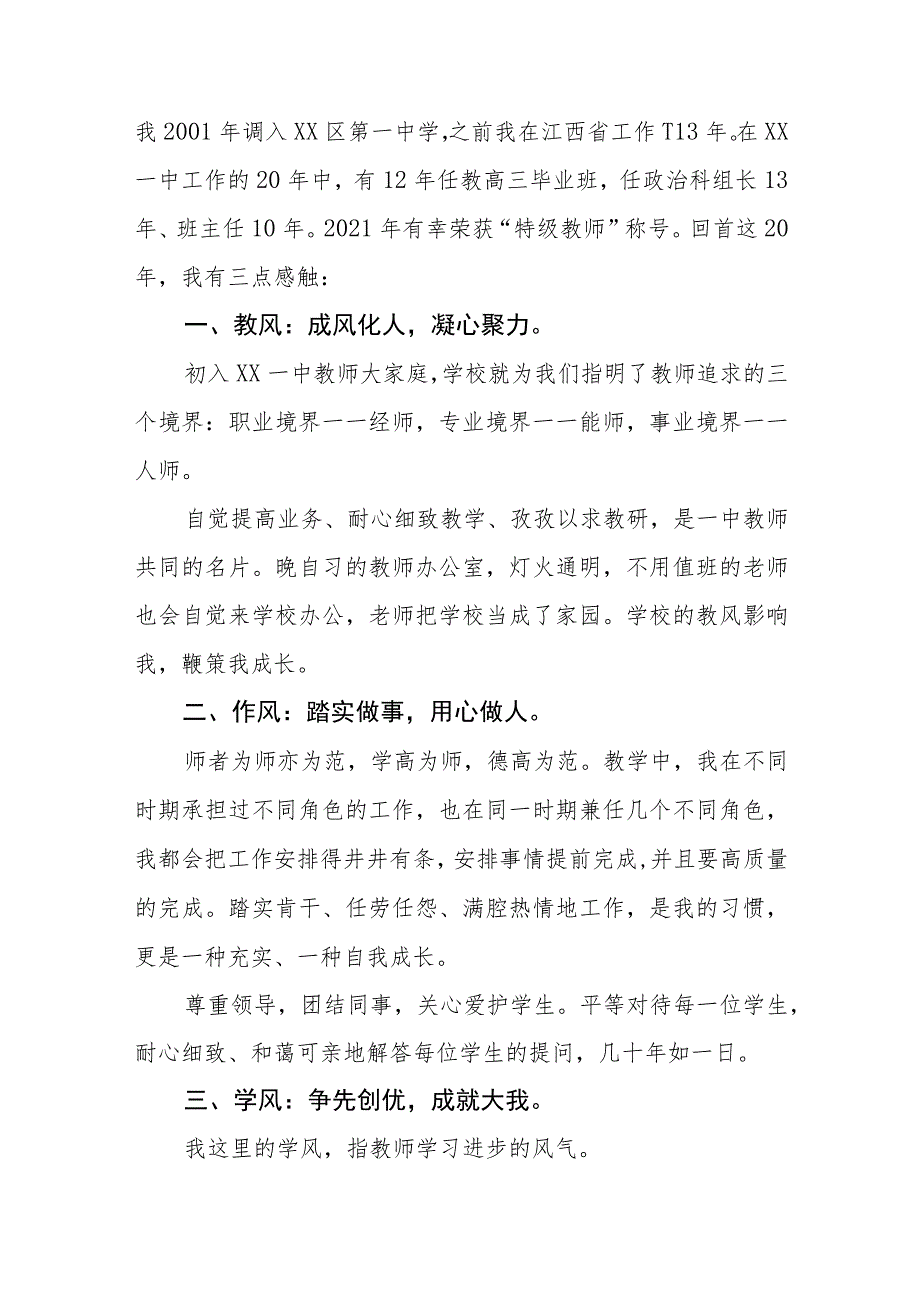 我 2001 年调入 XX 区第一中学,之前我在江西省工作 T13 年。在 XX
一中工作的 20 年中，有 12 年任教高三毕业班，任政治科组长 13
年、班主任 10 年。2021 年有幸荣获“特级教师”称号。回首这 20
年，我有三点感触：
一、教风：成风化人，凝心聚力。
初入 XX 一中教师大家庭,学校就为我们指明了教师追求的三
个境界：职业境界一一经师，专业境界一一能师，事业境界一一
人师。
自觉提高业务、耐心细致教学、孜孜以求教研，是一中教师
共同的名片。晚自习的教师办公室，灯火通明，不用值班的老师
也会自觉来学校办公，老师把学校当成了家园。学校的教风影响
我，鞭策我成长。
二、作风：踏实做事，用心做人。
师者为师亦为范，学高为师，德高为范。教学中，我在不同
时期承担过不同角色的工作，也在同一时期兼任几个不同角色，
我都会把工作安排得井井有条，安排事情提前完成,并且要高质量
的完成。踏实肯干、任劳任怨、满腔热情地工作，是我的习惯，
更是一种充实、一种自我成长。
尊重领导，团结同事，关心爱护学生。平等对待每一位学生，
耐心细致、和蔼可亲地解答每位学生的提问，几十年如一日。
三、学风：争先创优，成就大我。
我这里的学风，指教师学习进步的风气。